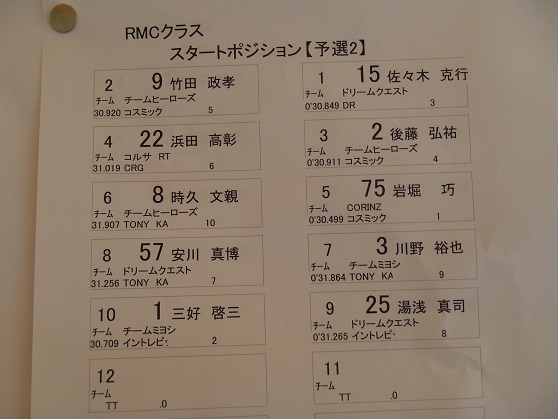 RMCクラス
スタートポジション【予選2】
2 9 竹田 政孝
チーム チームヒーローズ
30.920 コスミック 5
1 15 佐々木 克行
チーム ドリームクエスト
0'30.849 DR 3
4 22 浜田 高彰
チーム コルサ RT
31.019 CRG 6
3 2 後藤 弘祐
チーム チームヒーローズ
0'30.911 コスミック 4
6 8 時久 文親
チーム チームヒーローズ
31.907 TONY KA 10
5 75 岩堀 巧
チーム CORINZ
0'30.499 コスミック 1
8 57 安川 真博
チーム ドリームクエスト
31.256 TONY KA 7
7 3 川野 裕也
チーム チームミヨシ
0'31.864 TONY KA 9
10 1 三好 啓三
チーム チームミヨシ
30.709 イントレピ 2
9 25 湯浅 真司
チーム ドリームクエスト
0'31.265 イントレピ 8
12
チーム
TT .0
11
チーム
TT .0